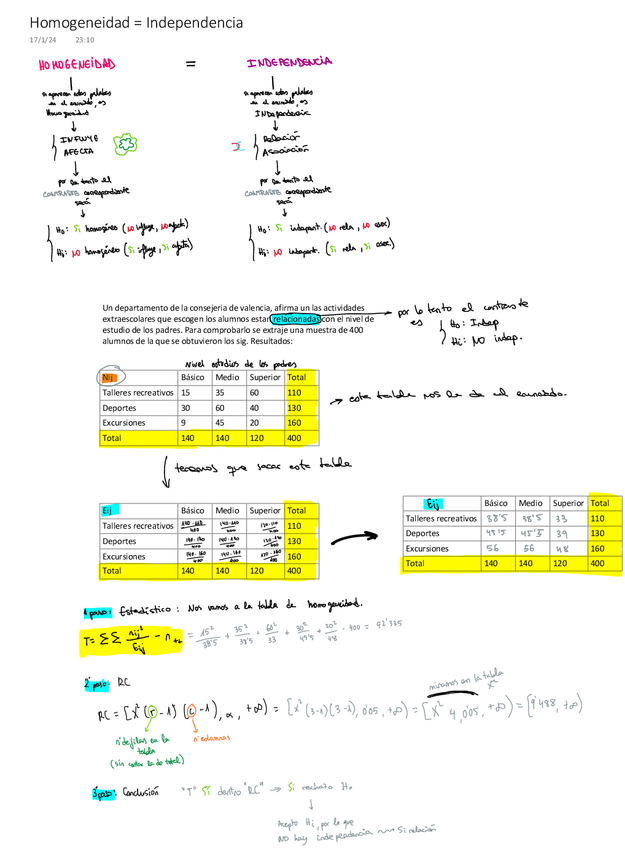 Homogeneidad = Independencia
17/1/24 23:10
HOMOGENEIDAD = INDEPENDENCIA
si aparecen estas palabras si aparecen estas palabras
en el enunciado, es en el enunciado, es
Homogeneidad INDependencia
INFLUYE Relación
AFECTA Asociación
por lo tanto el por lo tanto el
CONTRASTE correspondiente CONTRASTE correspondiente
será será
Ho: Si homogéneo (NO influye, NO afecta) Ho: Si independ. (NO rela, NO asoc)
Hi: NO homogéneo (Si influye, Si afecta) Hi: NO independ. (Si rela, Si asoc)
Un departamento de la consejeria de valencia, afirma un las actividades
extraescolares que escogen los alumnos estan relacionadas con el nivel de
estudio de los padres. Para comprobarlo se extraje una muestra de 400
alumnos de la que se obtuvieron los sig. Resultados:
por lo tanto el contraste
es Ho: Indep
Hi: NO indep.
Nivel estudios de los padres
Nij Básico Medio Superior Total
Talleres recreativos 15 35 60 110
Deportes 30 60 40 130
Excursiones 9 45 20 160
Total 140 140 120 400
esta tabla nos la da el enunciado.
tenemos que sacar esta tabla
Eij Básico Medio Superior Total
Talleres recreativos 140·110/400 140·110/400 120·110/400 110
Deportes 140·130/400 140·130/400 120·130/400 130
Excursiones 140·160/400 140·160/400 120·160/400 160
Total 140 140 120 400
Eij Básico Medio Superior Total
Talleres recreativos 38'5 38'5 33 110
Deportes 45'5 45'5 39 130
Excursiones 56 56 48 160
Total 140 140 120 400
1 paso: Estadístico: Nos vamos a la tabla de homogeneidad.
T= ΣΣ nij²/Eij - n = 15²/38'5 + 35²/38'5 + 60²/33 + 30²/45'5 + 20²/48 - 400 = 92'335
2 paso: RC
miramos en la tabla X²
RC = [X² (r-1) (c-1), α, +∞) = [X² (3-1)(3-1), 0'05, +∞) = [X² 4, 0'05, +∞) = [9'488, +∞)
nº de filas en la nº columnas
tabla
(sin contar la de total)
3 paso: Conclusión "T" Si dentro "RC" → Si rechazo Ho
Acepto Hi, por lo que
NO hay independencia Si relación